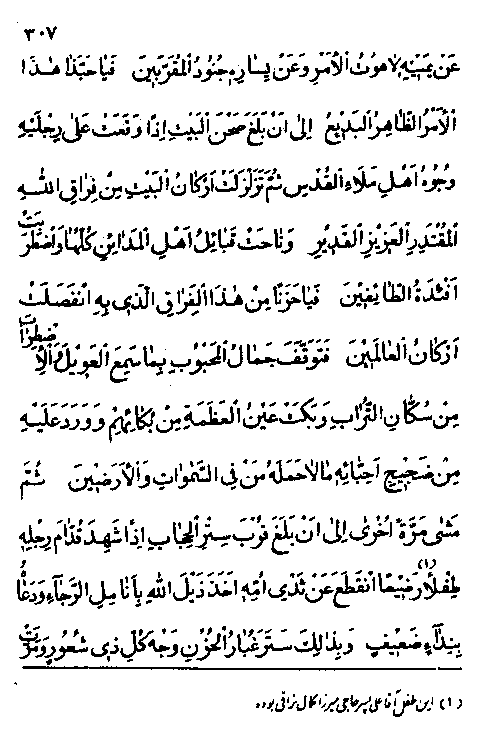 ٣٠٧
عَنْ يَمِيْنِهِ لَاهُوْتُ الْأَمْرِ وَعَنْ يَسَارِهِ جُنُوْدُ الْمُقَرَّبِيْنَ فَيَا حَبَّذَا هٰذَا
الْأَمْرُ الظَّاهِرُ الْبَدِيْعُ إِلَى أَنْ بَلَغَ صَحْنَ الْبَيْتِ إِذًا وَقَعَتْ عَلَى رِجْلَيْهِ
وُجُوْهُ أَهْلِ مَلَاءِ الْقُدْسِ ثُمَّ تَزَلْزَلَتْ أَرْكَانُ الْبَيْتِ مِنْ فِرَاقِ اللهِ
الْمُقْتَدِرِ الْعَزِيْزِ الْقَدِيْرِ وَنَاحَتْ قَبَائِلُ أَهْلِ الْمَدَايِنِ كُلِّهَا وَاضْطَرَبَتْ
أَفْئِدَةُ الطَّائِفِيْنَ فَيَا حَزَنًا مِنْ هٰذَا الْفِرَاقِ الَّذِي بِهِ انْفَصَلَتْ
أَرْكَانُ الْعَالَمِيْنَ فَتَوَقَّفَ جَمَالُ الْمَحْبُوْبِ بِمَا سَمِعَ الْعَوِيْلَ وَالْاِضْطِرَابَ
مِنْ سُكَّانِ التُّرَابِ وَبَكَتْ عَيْنُ الْعَظَمَةِ مِنْ بُكَائِهِمْ وَوَرَدَ عَلَيْهِ
مِنْ ضَجِيْجِ أَحِبَّائِهِ مَا لَا حَمَلَهُ مَنْ فِي السَّمٰوَاتِ وَالْأَرَضِيْنَ ثُمَّ
مَشَى مَرَّةً أُخْرَى إِلَى أَنْ بَلَغَ قُرْبَ سِتْرِ الْحِجَابِ إِذًا شَهِدَ قُدَّامَ رِجْلِهِ
طِفْلًا (١) رَضِيْعًا انْقَطَعَ عَنْ ثَدْيِ أُمِّهِ أَخَذَ ذَيْلَ اللهِ بِأَنَامِلِ الرَّجَاءِ وَدَعَا
بِنِدَاءٍ ضَعِيْفٍ وَبِذَالِكَ سَتَرَ غُبَارُ الْحُزْنِ وَجْهَ كُلِّ ذِي شُعُوْرٍ وَمَرَّتْ
(١) این طفل آقا علی پسر حاجی میرزا کمال نراقی بوده